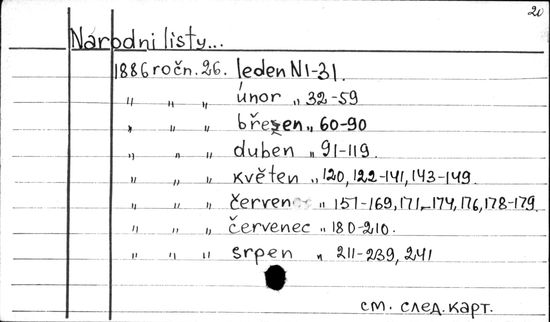 20
Národni listy...
1886 ročn. 26. leden N 1-31.
" " " únor " 32-59
" " " březen " 60-90
" " " duben " 91-119.
" " " květen " 120, 122-141, 143-149.
" " " červenec " 151-169, 171-174, 176, 178-179
" " " červenec " 180-210.
" " " srpen " 211-239, 241
см. след. карт.